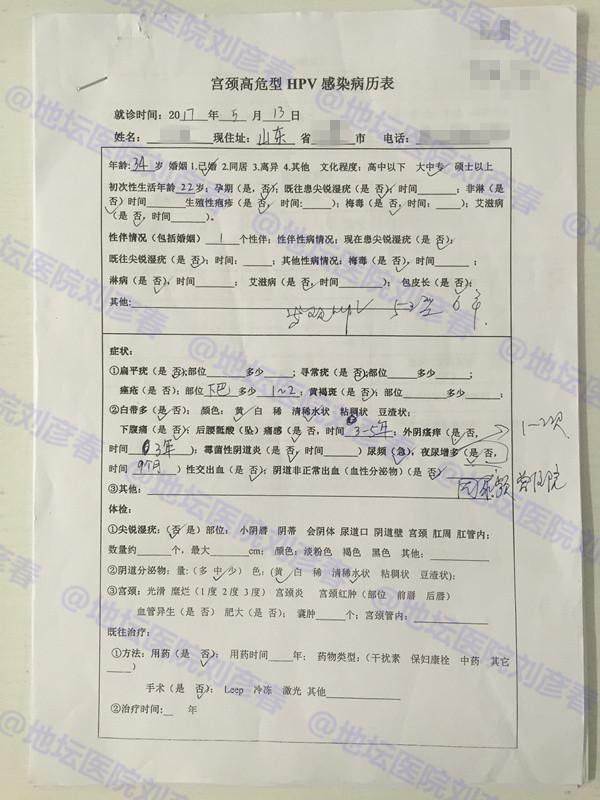 宫颈高危型 HPV 感染病历表
就诊时间：2017 年 5 月 13 日
姓名： 现住址：山东 省 市 电话：
年龄:34 岁 婚姻 1.已婚 2.同居 3.离异 4.其他 文化程度：高中以下 大中专 硕士以上
初次性生活年龄 22 岁；孕期（是，否）；既往患尖锐湿疣（是 否）；时间______；非淋（是
否）时间______生殖性疱疹（是 否， 时间:_____）；梅毒（是 否，时间：____）；艾滋病
（是 否，时间______）。
性伴情况（包括婚姻） 1 个性伴；性伴性病情况：现在患尖锐湿疣（是 否）；
既往尖锐湿疣（是 否）；时间：_____；其他性病情况：梅毒（是 否，时间_____ ；
淋病（是 否），时间_____； 艾滋病（是 否，时间______）； 包皮长（是 否）；
其他:
HPV 52型
症状：
①扁平疣（是 否）;部位_____多少____；寻常疣（是 否）;部位_____多少____；
痤疮（是 否）：部位 下巴 多少 1~2；黄褐斑（是 否）：部位_____多少_____；
②白带多（是 否）； 颜色： 黄 白 稀 清稀水状 粘稠状 豆渣状；
下腹痛（是 否）；后腰骶酸（坠）痛感（是 否，时间 3-5年；外阴瘙痒（是 否，
时间 3年）；霉菌性阴道炎（是 否，时间______）尿频（急），夜尿增多（是 否，
时间 9个月 ）性交出血（是 否）；阴道非正常出血（血性分泌物）（是 否）
1-2次
因尿频曾住院
③其他：
体检：
①尖锐湿疣：（否 是）部位： 小阴唇 阴蒂 会阴体 尿道口 阴道壁 宫颈 肛周 肛管内；
数量约_____个，最大_____cm； 颜色：淡粉色 褐色 黑色 其他：
②阴道分泌物：量:（多 中 少） 色:（黄 白 稀 清稀水状 粘稠状 豆渣状）；
③宫颈：光滑 糜烂（1度 2度 3度） 宫颈炎 宫颈红肿（部位 前唇 后唇）
血管异生（是 否） 肥大（是 否）； 囊肿_____个；宫颈管内：
既往治疗：
①方法：用药（是 否）； 用药时间____年； 药物类型：（干扰素 保妇康栓 中药 其它
____）
手术（是 否）； Leep 冷冻 激光 其他
②治疗时间:__ 年
@地坛医院刘彦春